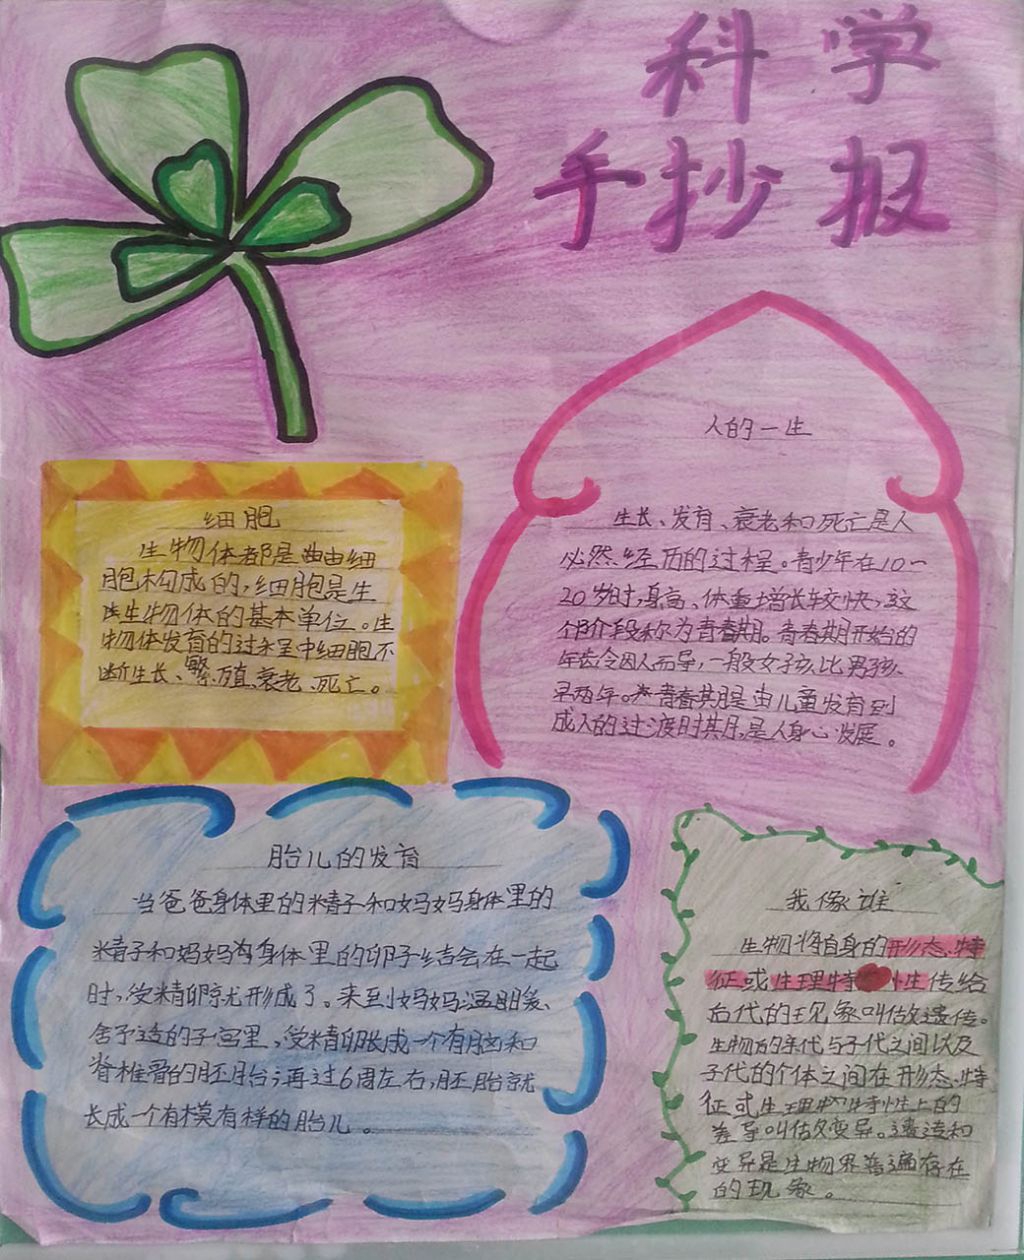 科学
手抄报
人的一生
生长、发育、衰老和死亡是人
必然经历的过程。青少年在10一
20岁时,身高、体重增长较快,这
个阶段称为青春期。青春期开始的
年龄令因人而异,一般女孩比男孩
早两年。青春期是由儿童发育到
成人的过渡时期,是人身心发展。
细胞
生物体都是由细
胞构成的,细胞是生
生物体的基本单位。生
物体发育的过程中细胞不
断生长、繁殖、衰老、死亡。
胎儿的发育
当爸爸身体里的精子和妈妈身体里的
精子和妈妈身体里的卵子结合在一起
时,受精卵就形成了。来到妈妈温暖、
舍予适的子宫里,受精卵长成一个有脑和
脊椎骨的胚胎;再过6周左右,胚胎就
长成一个有模有样的胎儿。
我像谁
生物将自身的形态特
征或生理特性传给
后代的现象叫做遗传。
生物的亲代与子代之间以及
子代的个体之间在形态特
征或生理特性上的
差异叫做变异。遗传和
变异是生物界普遍存在
的现象。